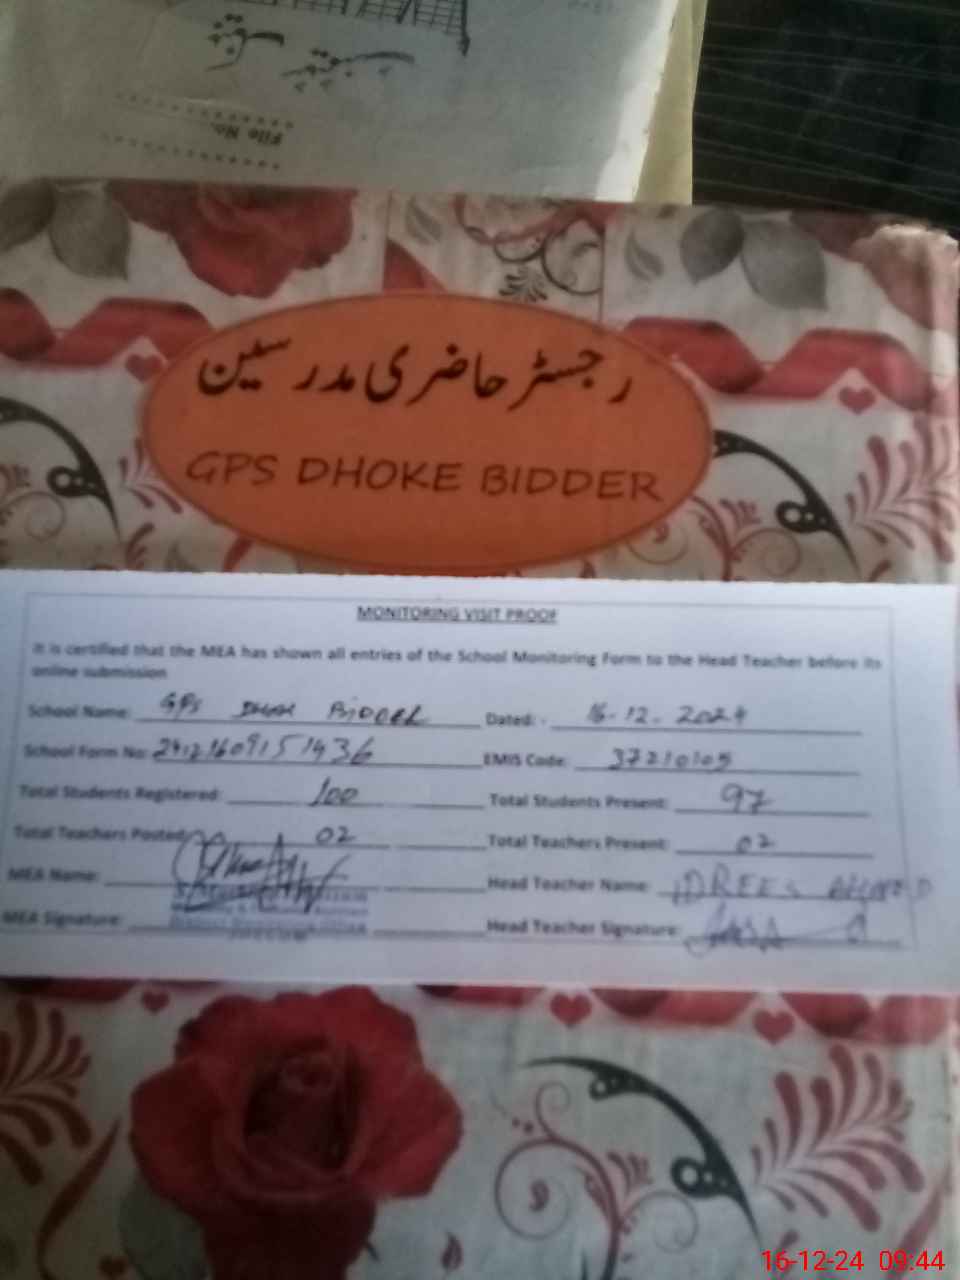 File No.
رجسٹر حاضری مدرسین
GPS DHOKE BIDDER
MONITORING VISIT PROOF
It is certified that the MEA has shown all entries of the School Monitoring Form to the Head Teacher before its
online submission
School Name: GPS DHOK BIDDER Dated: - 16-12-2024
School Form No: 24121609151436 EMIS Code: 37210105
Total Students Registered: 100 Total Students Present: 97
Total Teachers Posted: 02 Total Teachers Present: 02
MEA Name: Head Teacher Name: IDREES AHMED
MEA Signature: Head Teacher Signature:
16-12-24 09:44